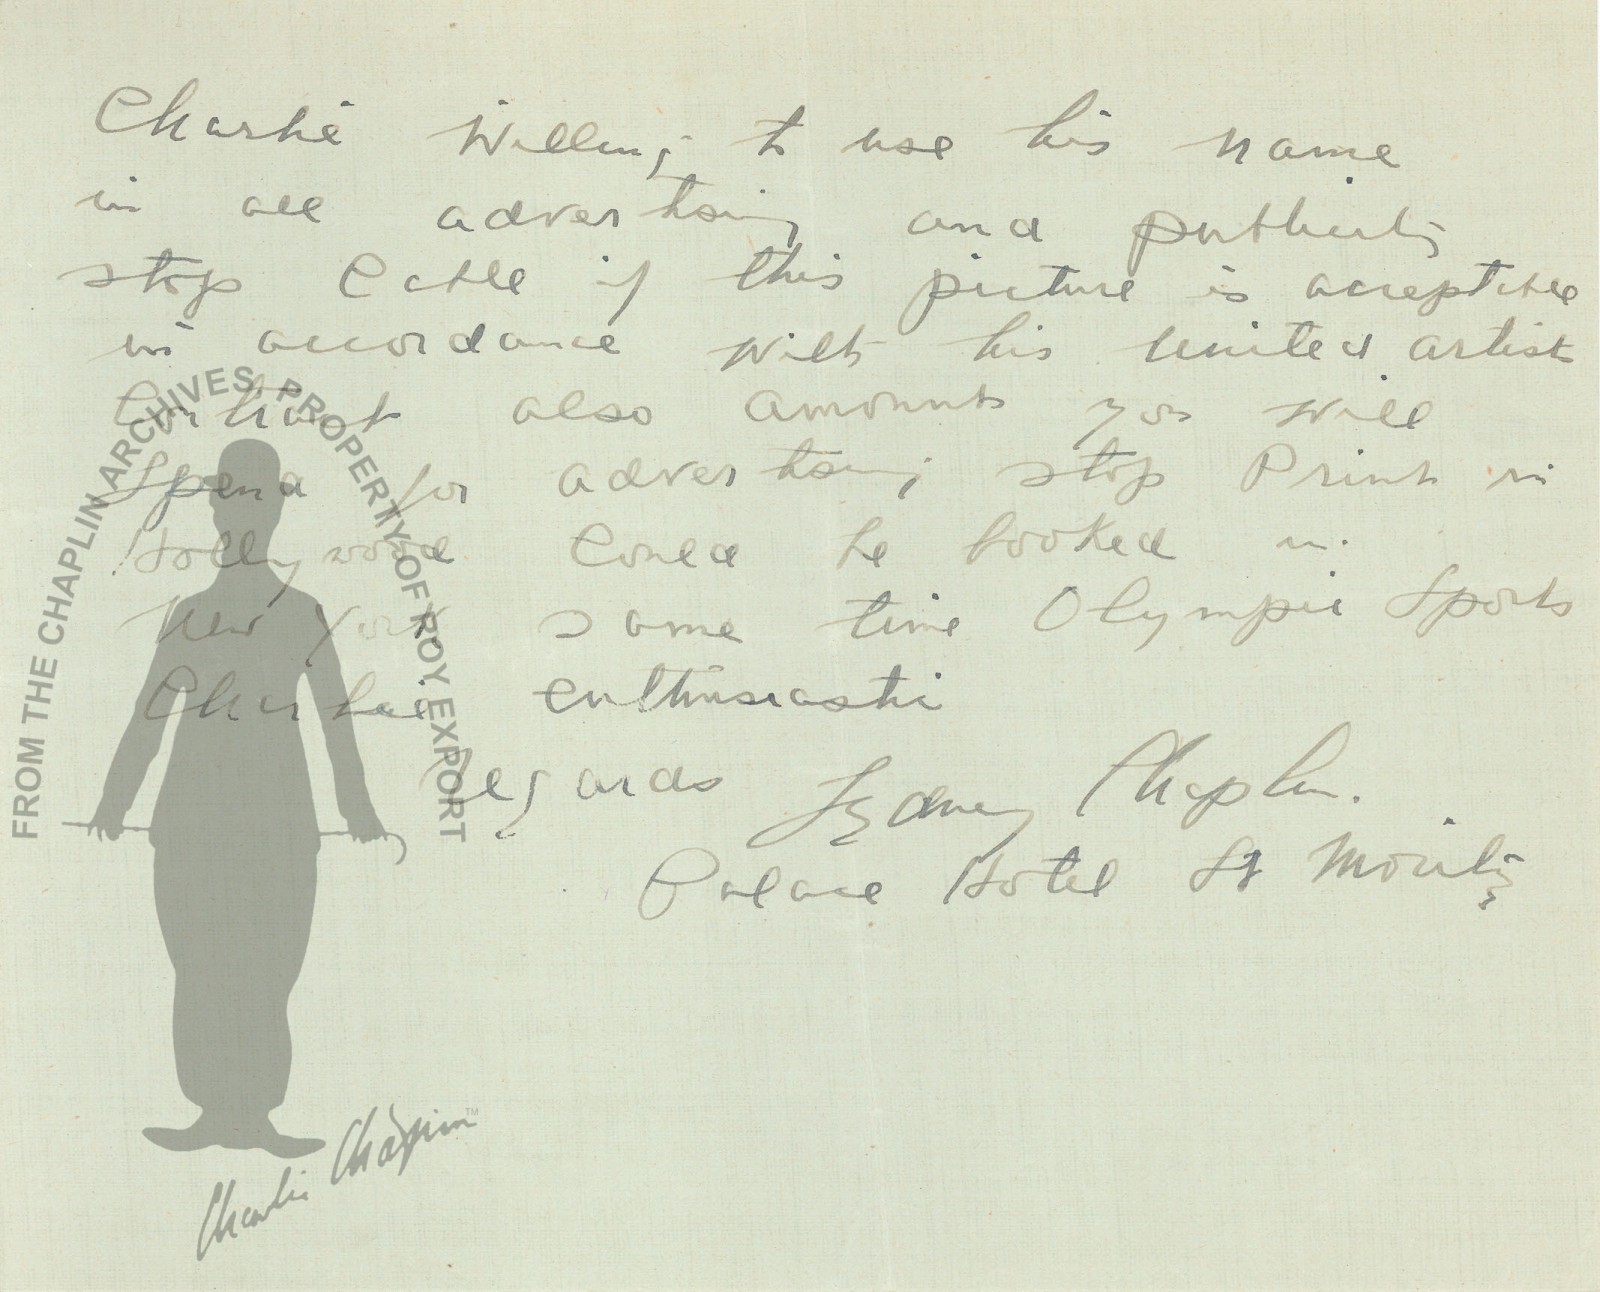 Charlie Willing to use his name
in all advertising and publicity
stop Cable if this picture is acceptable
in accordance with his United artist
Contract also amounts you will
Spend for advertising stop Print in
Hollywood Could be booked in
New York same time Olympic Sports
Charlie enthusiastic
Regards Sydney Chaplin.
Palace Hotel St Moritz
FROM THE CHAPLIN ARCHIVES, PROPERTY OF ROY EXPORT
Charlie Chaplin™